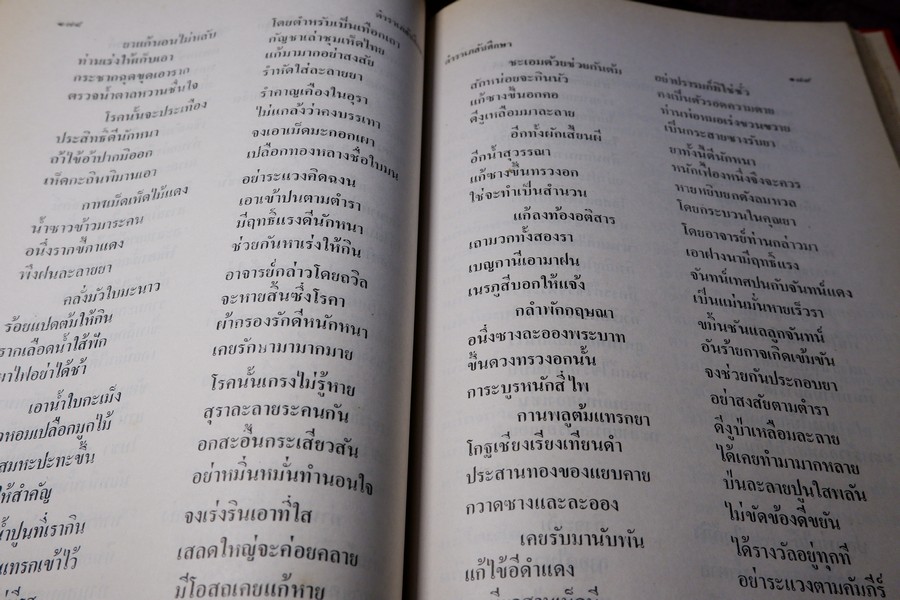 ๑๗๘
ยาแก้นอนไม่หลับ
ท่านเร่งให้กินเอา
กระชากฉุดขุดเอาราก
ตรวจน้ำตาลหวานชื่นใจ
โรคนั้นจะประเทือง
ประสิทธิ์ดีนักหนา
ถ้าไข้อ้าปากมิออก
เห็ดกะถินพิมานเอา
น้ำซาวข้าวมาระคน
อนึ่งรากขี้กาแดง
พึงฝนละลายยา
คลั่งมัวใบมะนาว
ร้อยแปดต้มให้กิน
รากเลือดน้ำใส้ทัก
เอาน้ำใบกะเม็ง
หอมเปลือกมูกไม้
สมหะปะทะขึ้น
ให้สำคัญ
น้ำปูนที่เรากิน
แทรกเข้าไว้
โดยตำหรับเป็นเทือกเถา
กัญชาเล่าชุมเห็ดไทย
แก้มามากอย่าสงสัย
รำหัดใส่ละลายยา
รำคาญเคืองในอุรา
ไม่แกล้งว่าคงบรรเทา
จงเอาเม็ดมะกอกเผา
เปลือกทองหลางชื่อใบมน
อย่าระแวงคิดฉงน
เอาเข้าปนตามตำรา
มีฤทธิ์แรงดีนักหนา
ช่วยกันหาเร่งให้กิน
อาจารย์กล่าวโดยถวิล
จะหายสิ้นซึ่งโรคา
ผ้ากรองรักดีหนักหนา
เคยรักษามามากมาย
โรคนั้นเกรงไม่รู้หาย
สุราละลายระคนกัน
อกสะอื้นกระเสียวสัน
อย่าหมิ่นหมั่นทำนอนใจ
จงเร่งรินเอาที่ใส
เสลดใหญ่จะค่อยคลาย
มีโอสถเคยแก้หาย
ตำราเภสัชศึกษา
๑๗๙
ชะเอมด้วยช่วยกันต้ม
สักหน่อยจะกินนัว
แก้ซางขึ้นอกคอ
ดีงูเหลือมมาละลาย
อีกทั้งผักเสี้ยนผี
อีกน้ำสุวรรณา
แก้ซางขึ้นทรวงอก
ใช่จะทำเป็นสำนวน
แก้ลงท้องอติสาร
เถามวกทั้งสองรา
เบญกานีเอามาฝน
เนรภูสีบอกให้แจ้ง
กลำพักกฤษณา
อนึ่งซางละอองพระบาท
ขึ้นดวงทรวงอกนั้น
การะบูรหนักสี่ไพ
กานพลูต้มแทรกยา
โกฐเชียงเรียงเทียนดำ
ประสานทองของแยบคาย
กวาดซางและละออง
เคยรับมานับพัน
แก้ไข้อีดำแดง
อย่าปรารมภ์ก็มิใช่ชั่ว
คงเป็นตัวรอดความตาย
ท่านพ่อหมอเร่งขวนขวาย
เป็นกระสายซางรับยา
ยาทั้งนี้ดีนักหนา
หนักเฟื้องหนึ่งจึงจะควร
หายหยิบยกดังลมหวล
โดยกระบวนในคุณยา
โดยอาจารย์ท่านกล่าวมา
เอาฝางนามีฤทธิ์แรง
จันทน์เทศปนกับจันทน์แดง
เป็นแม่นมั่นหายเร็วรา
ขมิ้นชันแลลูกจันทน์
อันร้ายกาจเกิดเข้มขัน
จงช่วยกันประกอบยา
อย่าสงสัยตามตำรา
ดีงูป่าเหลือมละลาย
ได้เคยทำมามากหลาย
ปั่นละลายปูนใสพลัน
ไม่ขัดข้องดีขยัน
ได้รางวัลอยู่ทุกที
อย่าระแวงตามคัมภีร์